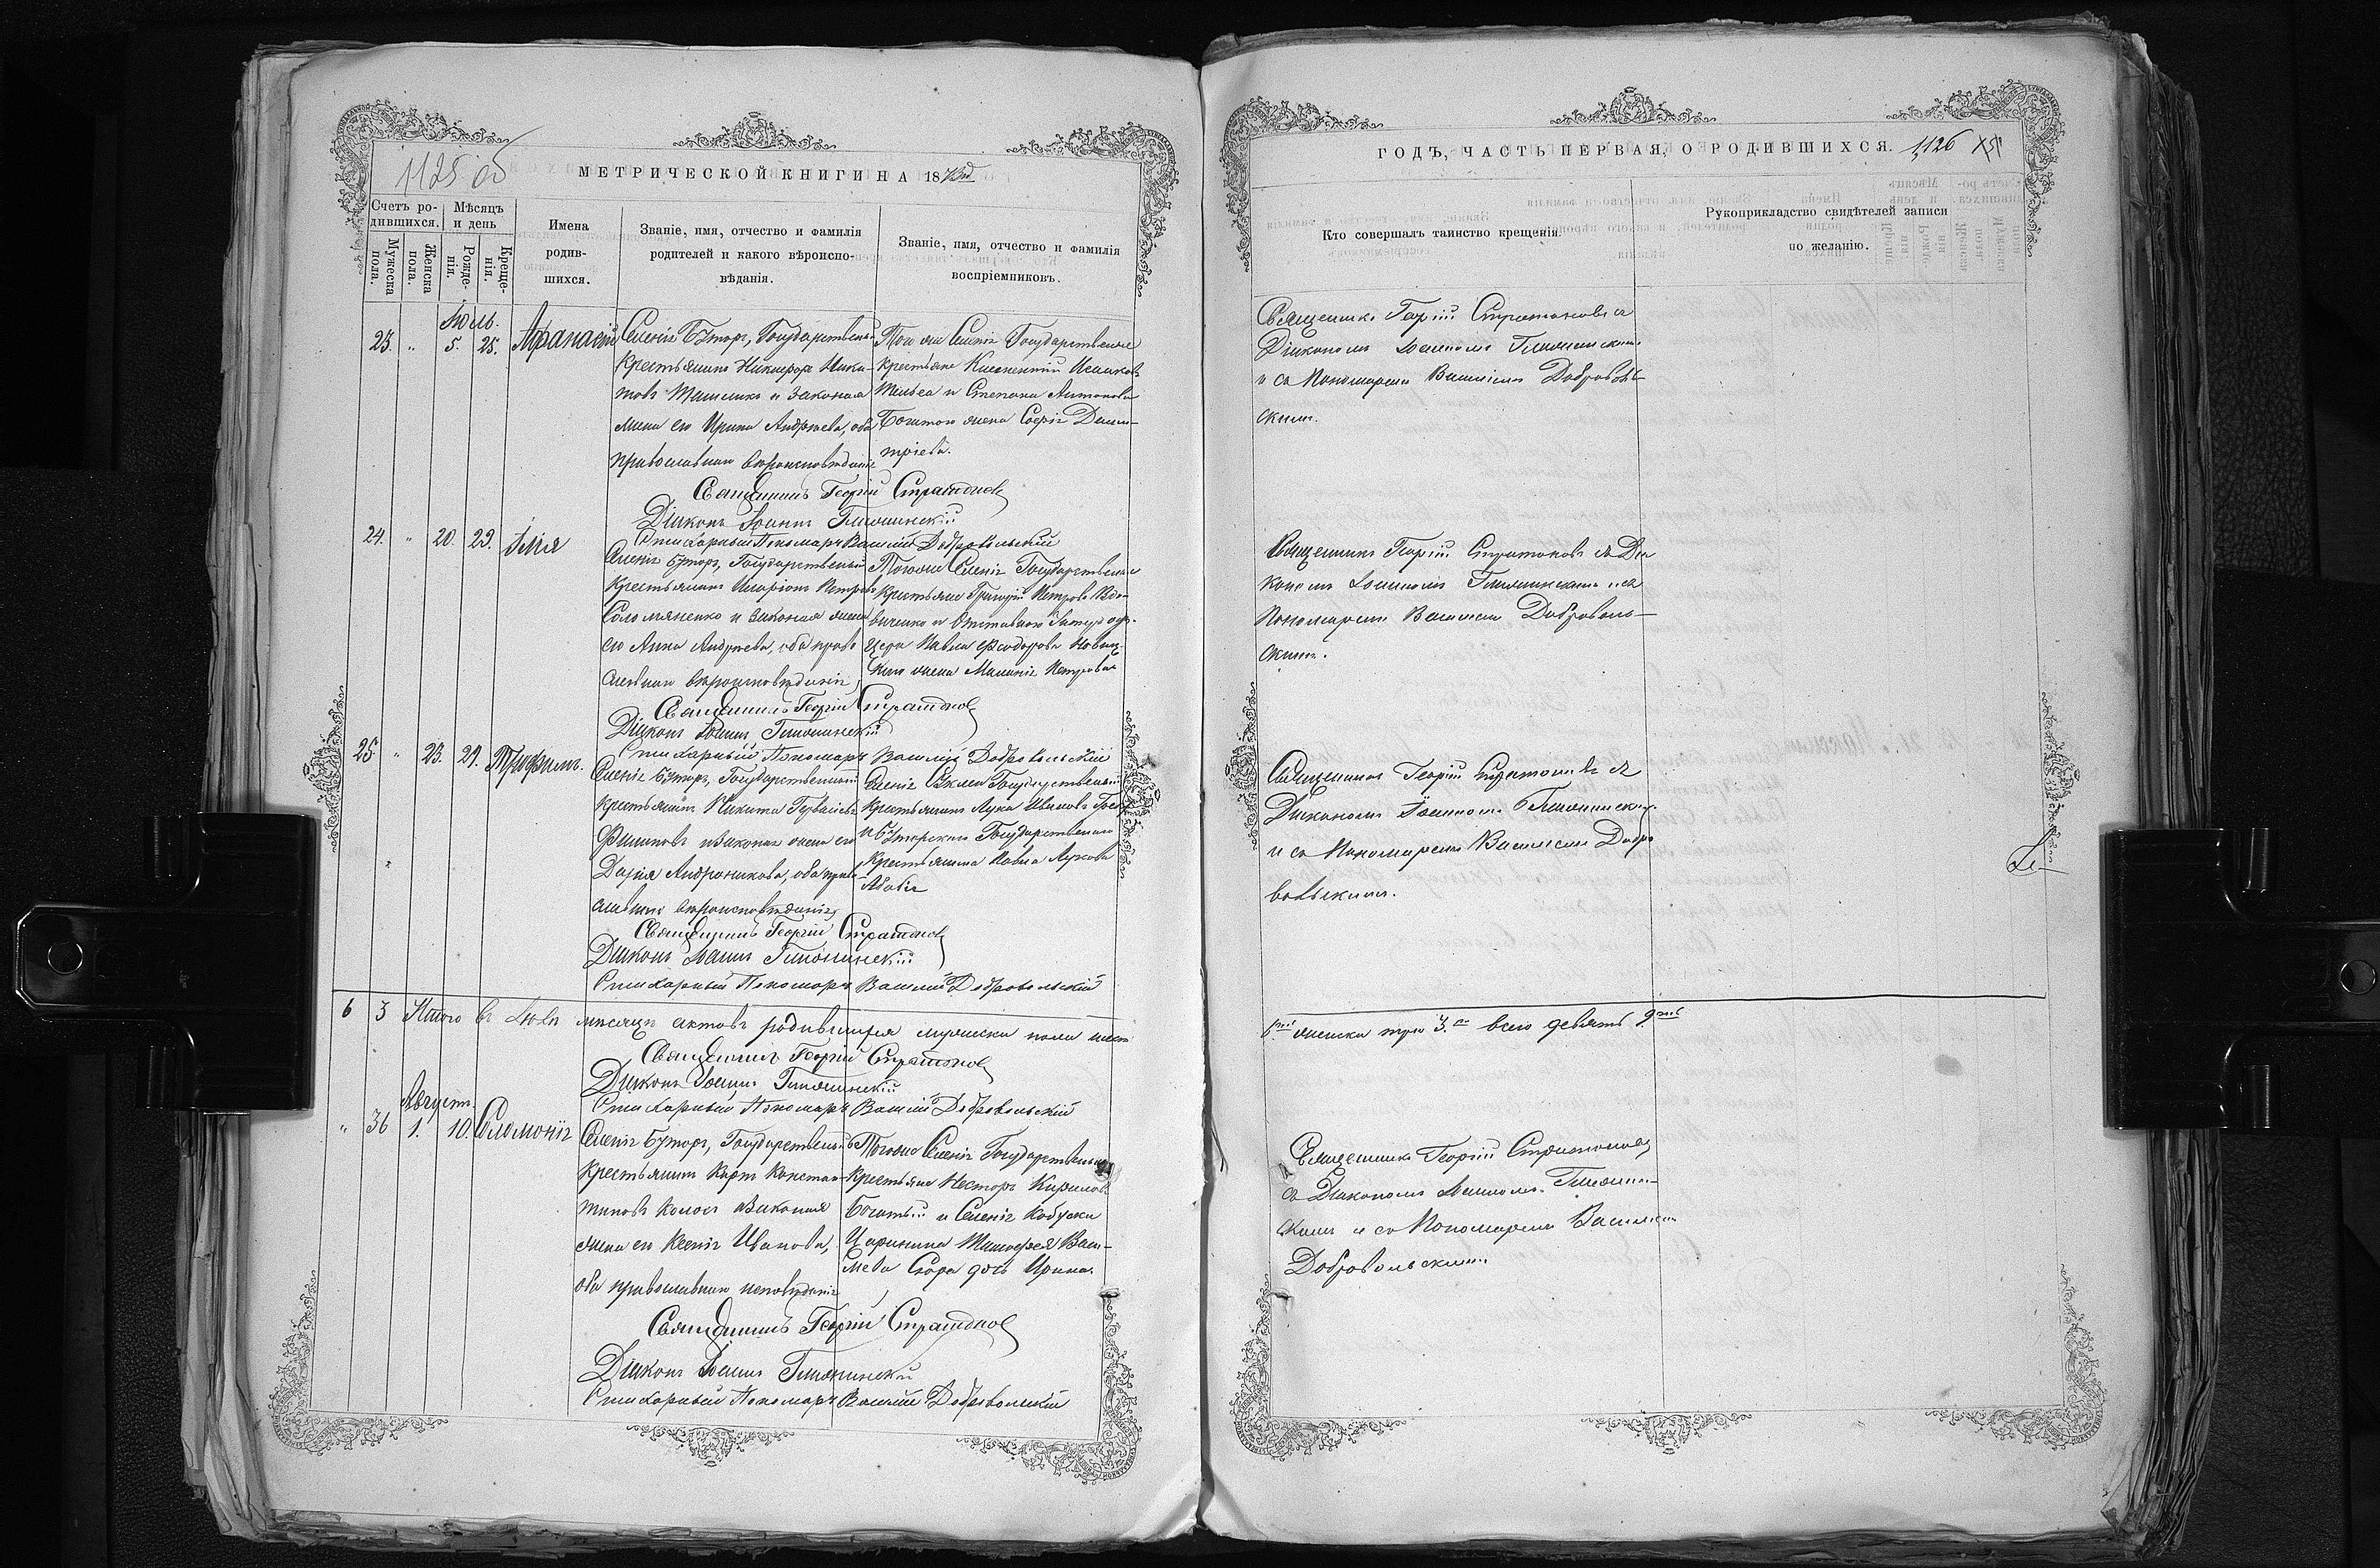 1125 об
МЕТРИЧЕСКОЙ КНИГИ НА 18
Счетъ ро-
дившихся.
Мѣсяцъ
и день
Мужеска
пола.
Женска
пола.
Рожде-
нія.
Креще-
нія.
Имена
родив-
шихся.
Званіе, имя, отчество и фамилія
родителей и какого вѣроиспо-
вѣданія.
Званіе, имя, отчество и фамилія
воспріемниковъ.
Іюль.
23. " 5. 25. Афанасій
Селенія Буторъ, Государственный
крестьянинъ Никифоръ Ники-
товъ и законная
жена его Ирина Андреева, оба
православнаго вѣроисповѣданія
Того же Селенія Государственные
крестьяне
и Степана Антонова
Богатого жена Софія Дими-
тріева.
Священникъ Георгій Стратоновъ
Діаконъ Іоаннъ
Стихарный Пономарь Василій Добровольскій
24. " 20. 29. Илія
Селенія Буторъ, Государственный
крестьянинъ Иларіонъ Петровъ
Соломяненко и законная жена
его Анна Андреева, оба право-
славнаго вѣроисповѣданія
Того же Селенія Государственный
крестьянинъ Григорій Петровъ
и Отставного Унтеръ офи-
цера Павла Феодорова
жена Меланія Петрова
Священникъ Георгій Стратоновъ
Діаконъ Іоаннъ
Стихарный Пономарь Василій Добровольскій
25. " 23. 29. Трифонъ.
Селенія Буторъ, Государственный
крестьянинъ Никита
Филиповъ и законная жена его
Дарія Андроникова, оба право-
славнаго вѣроисповѣданія
Селенія Государственный
крестьянинъ Лука Ивановъ
и Буторскаго Государственнаго
крестьянина Павла Лукова
Священникъ Георгій Стратоновъ
Діаконъ Іоаннъ
Стихарный Пономарь Василій Добровольскій
6 3 Итого въ Іюлѣ мѣсяцѣ актовъ родившихся мужеска пола шесть
Священникъ Георгій Стратоновъ
Діаконъ Іоаннъ
Стихарный Пономарь Василій Добровольскій
Августъ.
" 36 1. 10. Соломонія
Селенія Буторъ, Государственный
крестьянинъ Карпъ Констан-
тиновъ и законная
жена его Ксенія Иванова,
оба православнаго исповѣданія
Того же Селенія Государственный
крестьянинъ Несторъ Кириловъ
Богатый и Селенія
Тимофея Васи-
льева дочь Ирина.
Священникъ Георгій Стратоновъ
Діаконъ Іоаннъ
Стихарный Пономарь Василій Добровольскій
ГОДЪ, ЧАСТЬ ПЕРВАЯ, О РОДИВШИХСЯ. 1126
Кто совершалъ таинство крещенія.
Рукоприкладство свидѣтелей записи
по желанію.
Священникъ Георгій Стратоновъ съ
Діакономъ Іоанномъ
и съ Пономаремъ Василіемъ Доброволь-
скимъ.
Священникъ Георгій Стратоновъ съ Діа-
кономъ Іоанномъ и съ
Пономаремъ Василіемъ Доброволь-
скимъ.
Священникъ Георгій Стратоновъ съ
Діакономъ Іоанномъ
и съ Пономаремъ Василіемъ Добро-
вольскимъ.
женска три 3. всего девять 9
Священникъ Георгій Стратоновъ
съ Діакономъ Іоанномъ
скимъ и съ Пономаремъ Василіемъ
Добровольскимъ